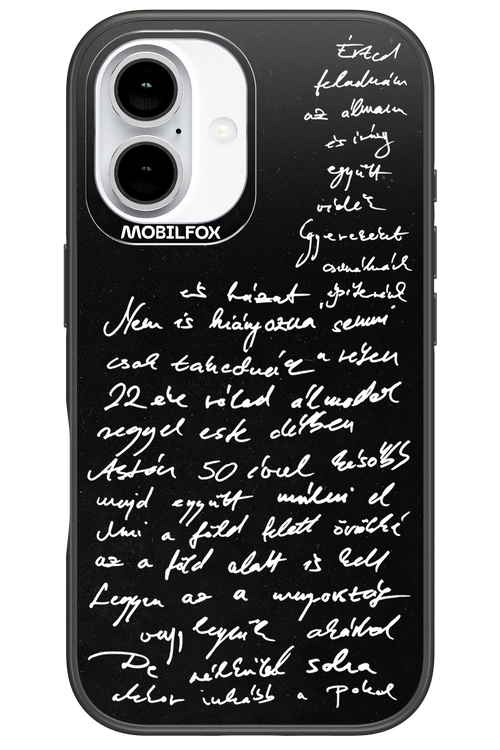 MOBILFOX
Érted
feladnám
az álmom
és így
együtt
veled
Gyereket
csinálnék
és házat építenék
Nem is hiányozna semmi
csak takednéz a résen
22 éve rólad álmodok
reggel este délben
Aztán 50 évvel később
majd együtt múlni el
Ami a föld felett örökké
az a föld alatt is kell
Legyen az a mennyország
vagy legyünk akárhol
De nélküled soha
akkor inkább a Pokol